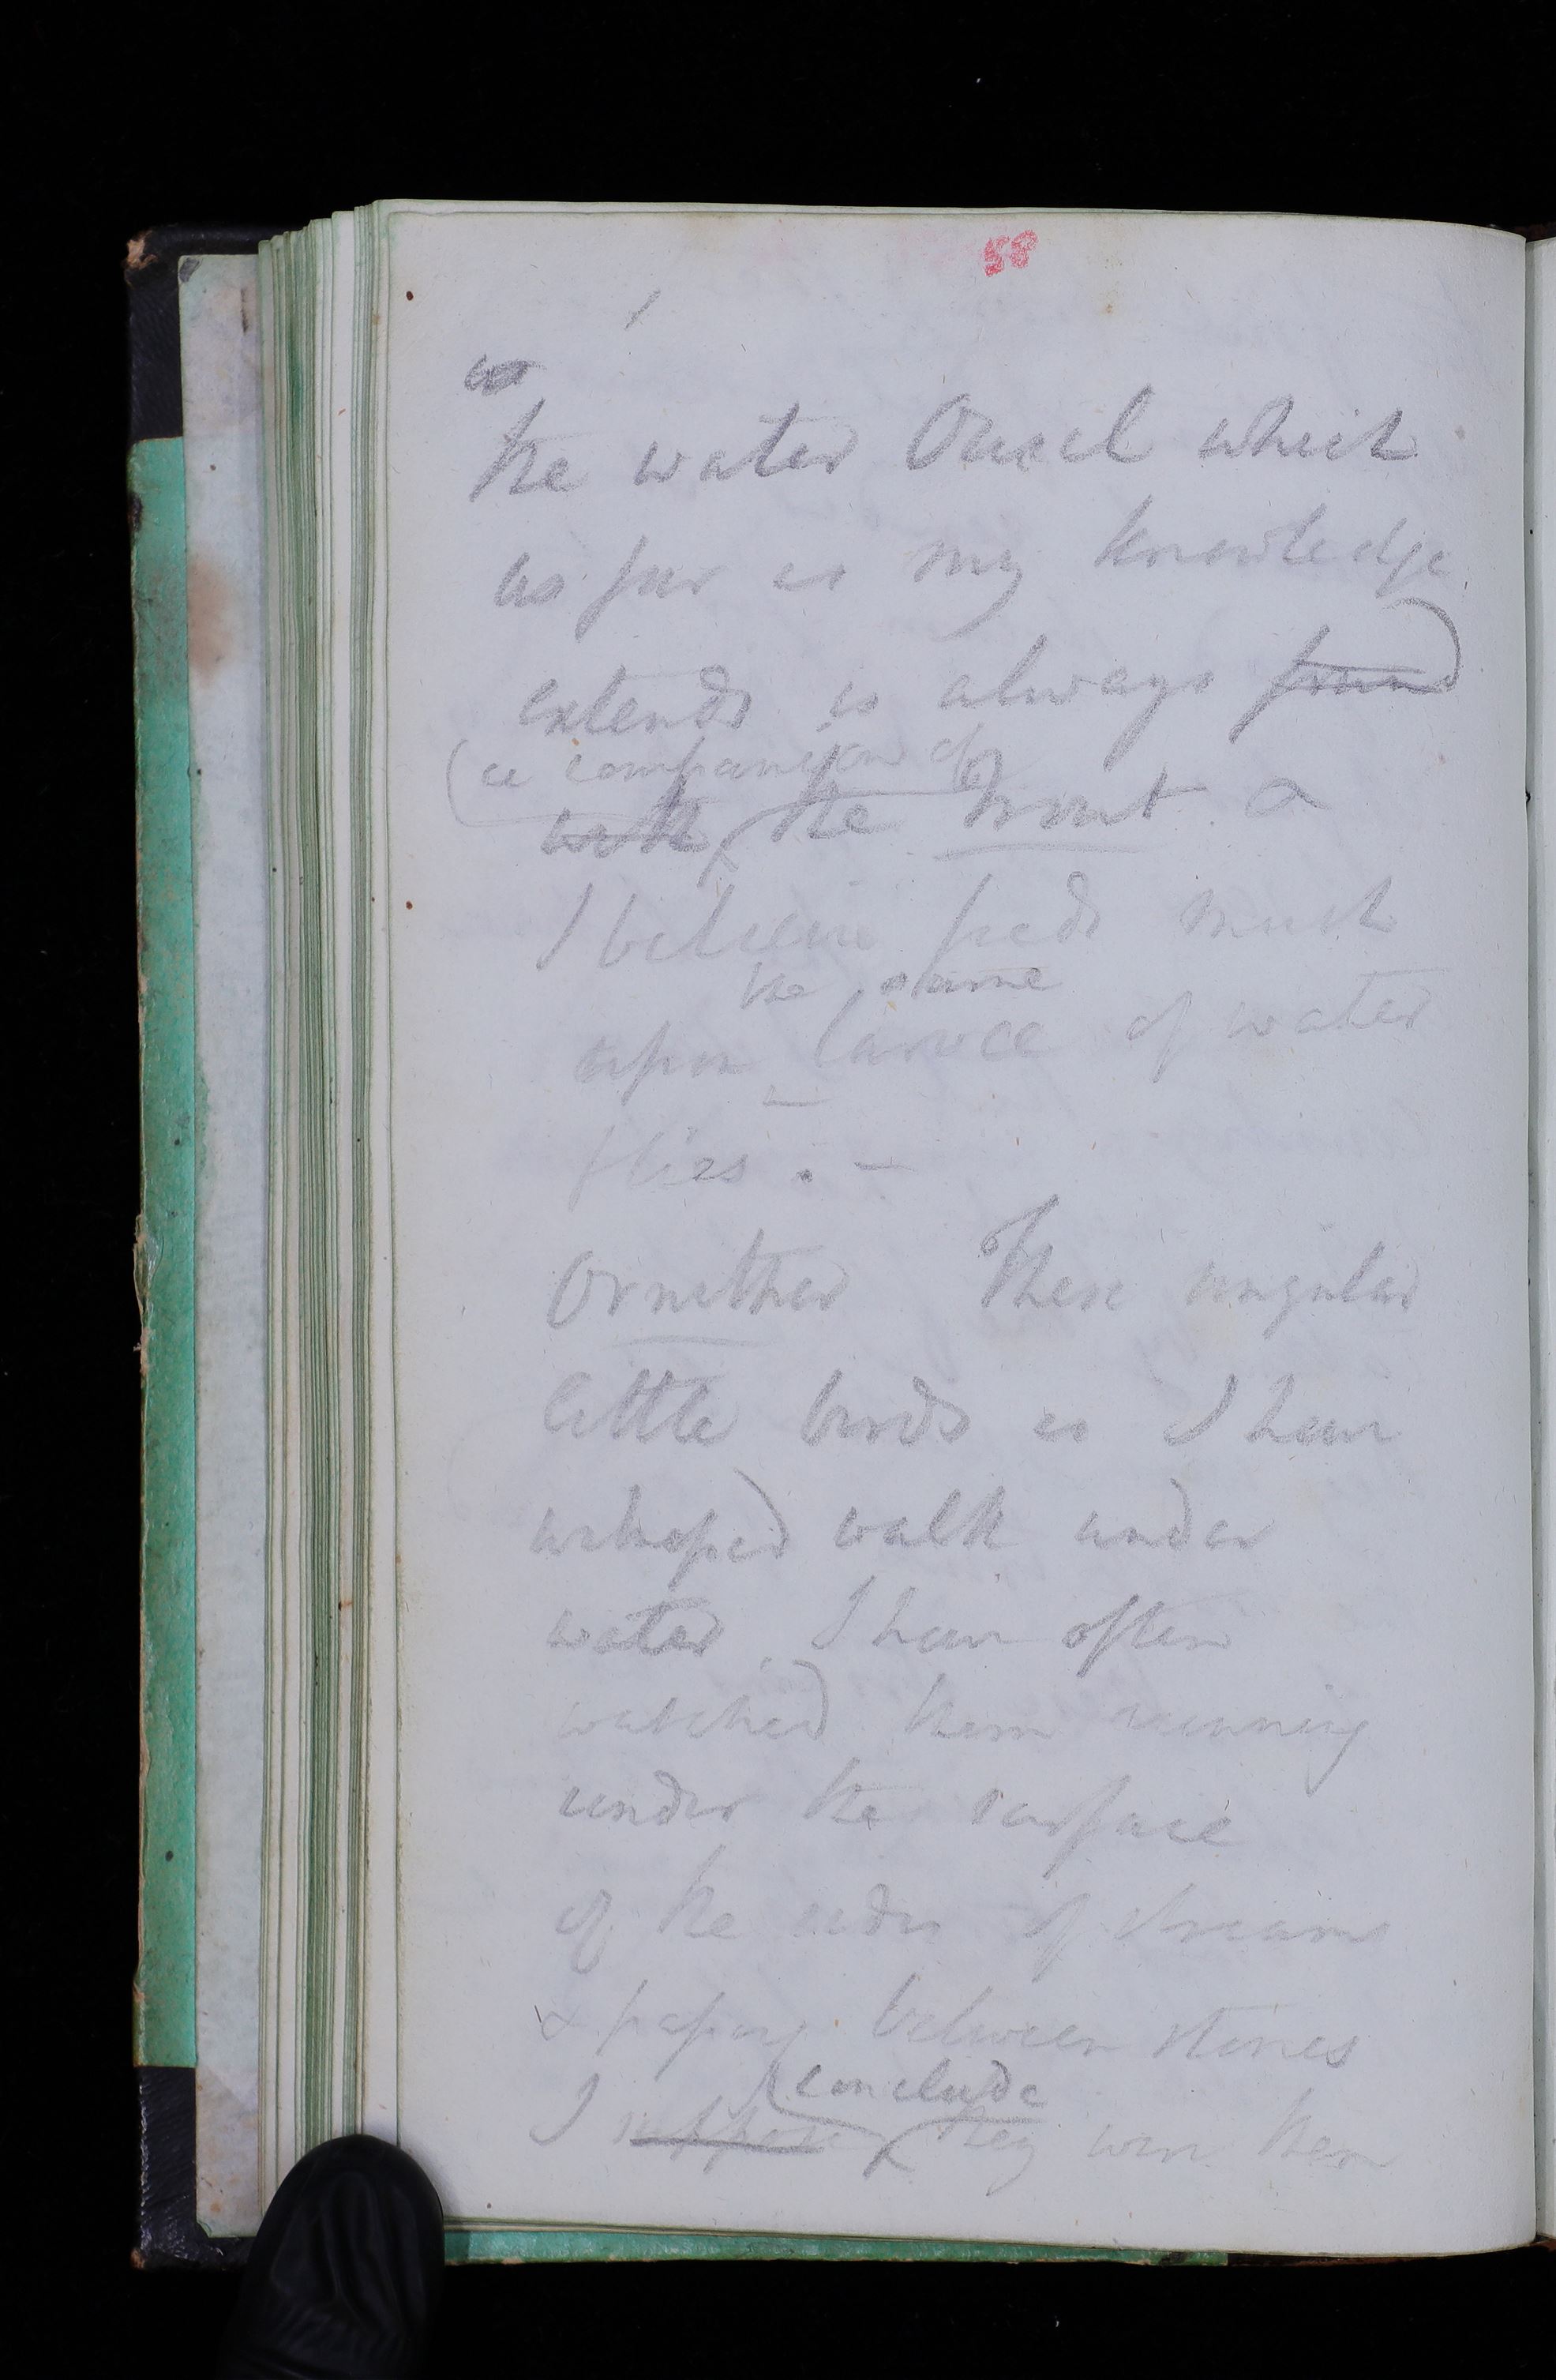 58
the water Ousel which
as far as my knowledge
extends is always found
a companion of
with the Trout &
I believe feeds much
the same
upon larvae of water
flies . -
Ornither These singular
little birds as I have
walk under
water I have often
watched them running
under the surface
of the sides of streams
& passing between stones
conclude
I suppose they were then